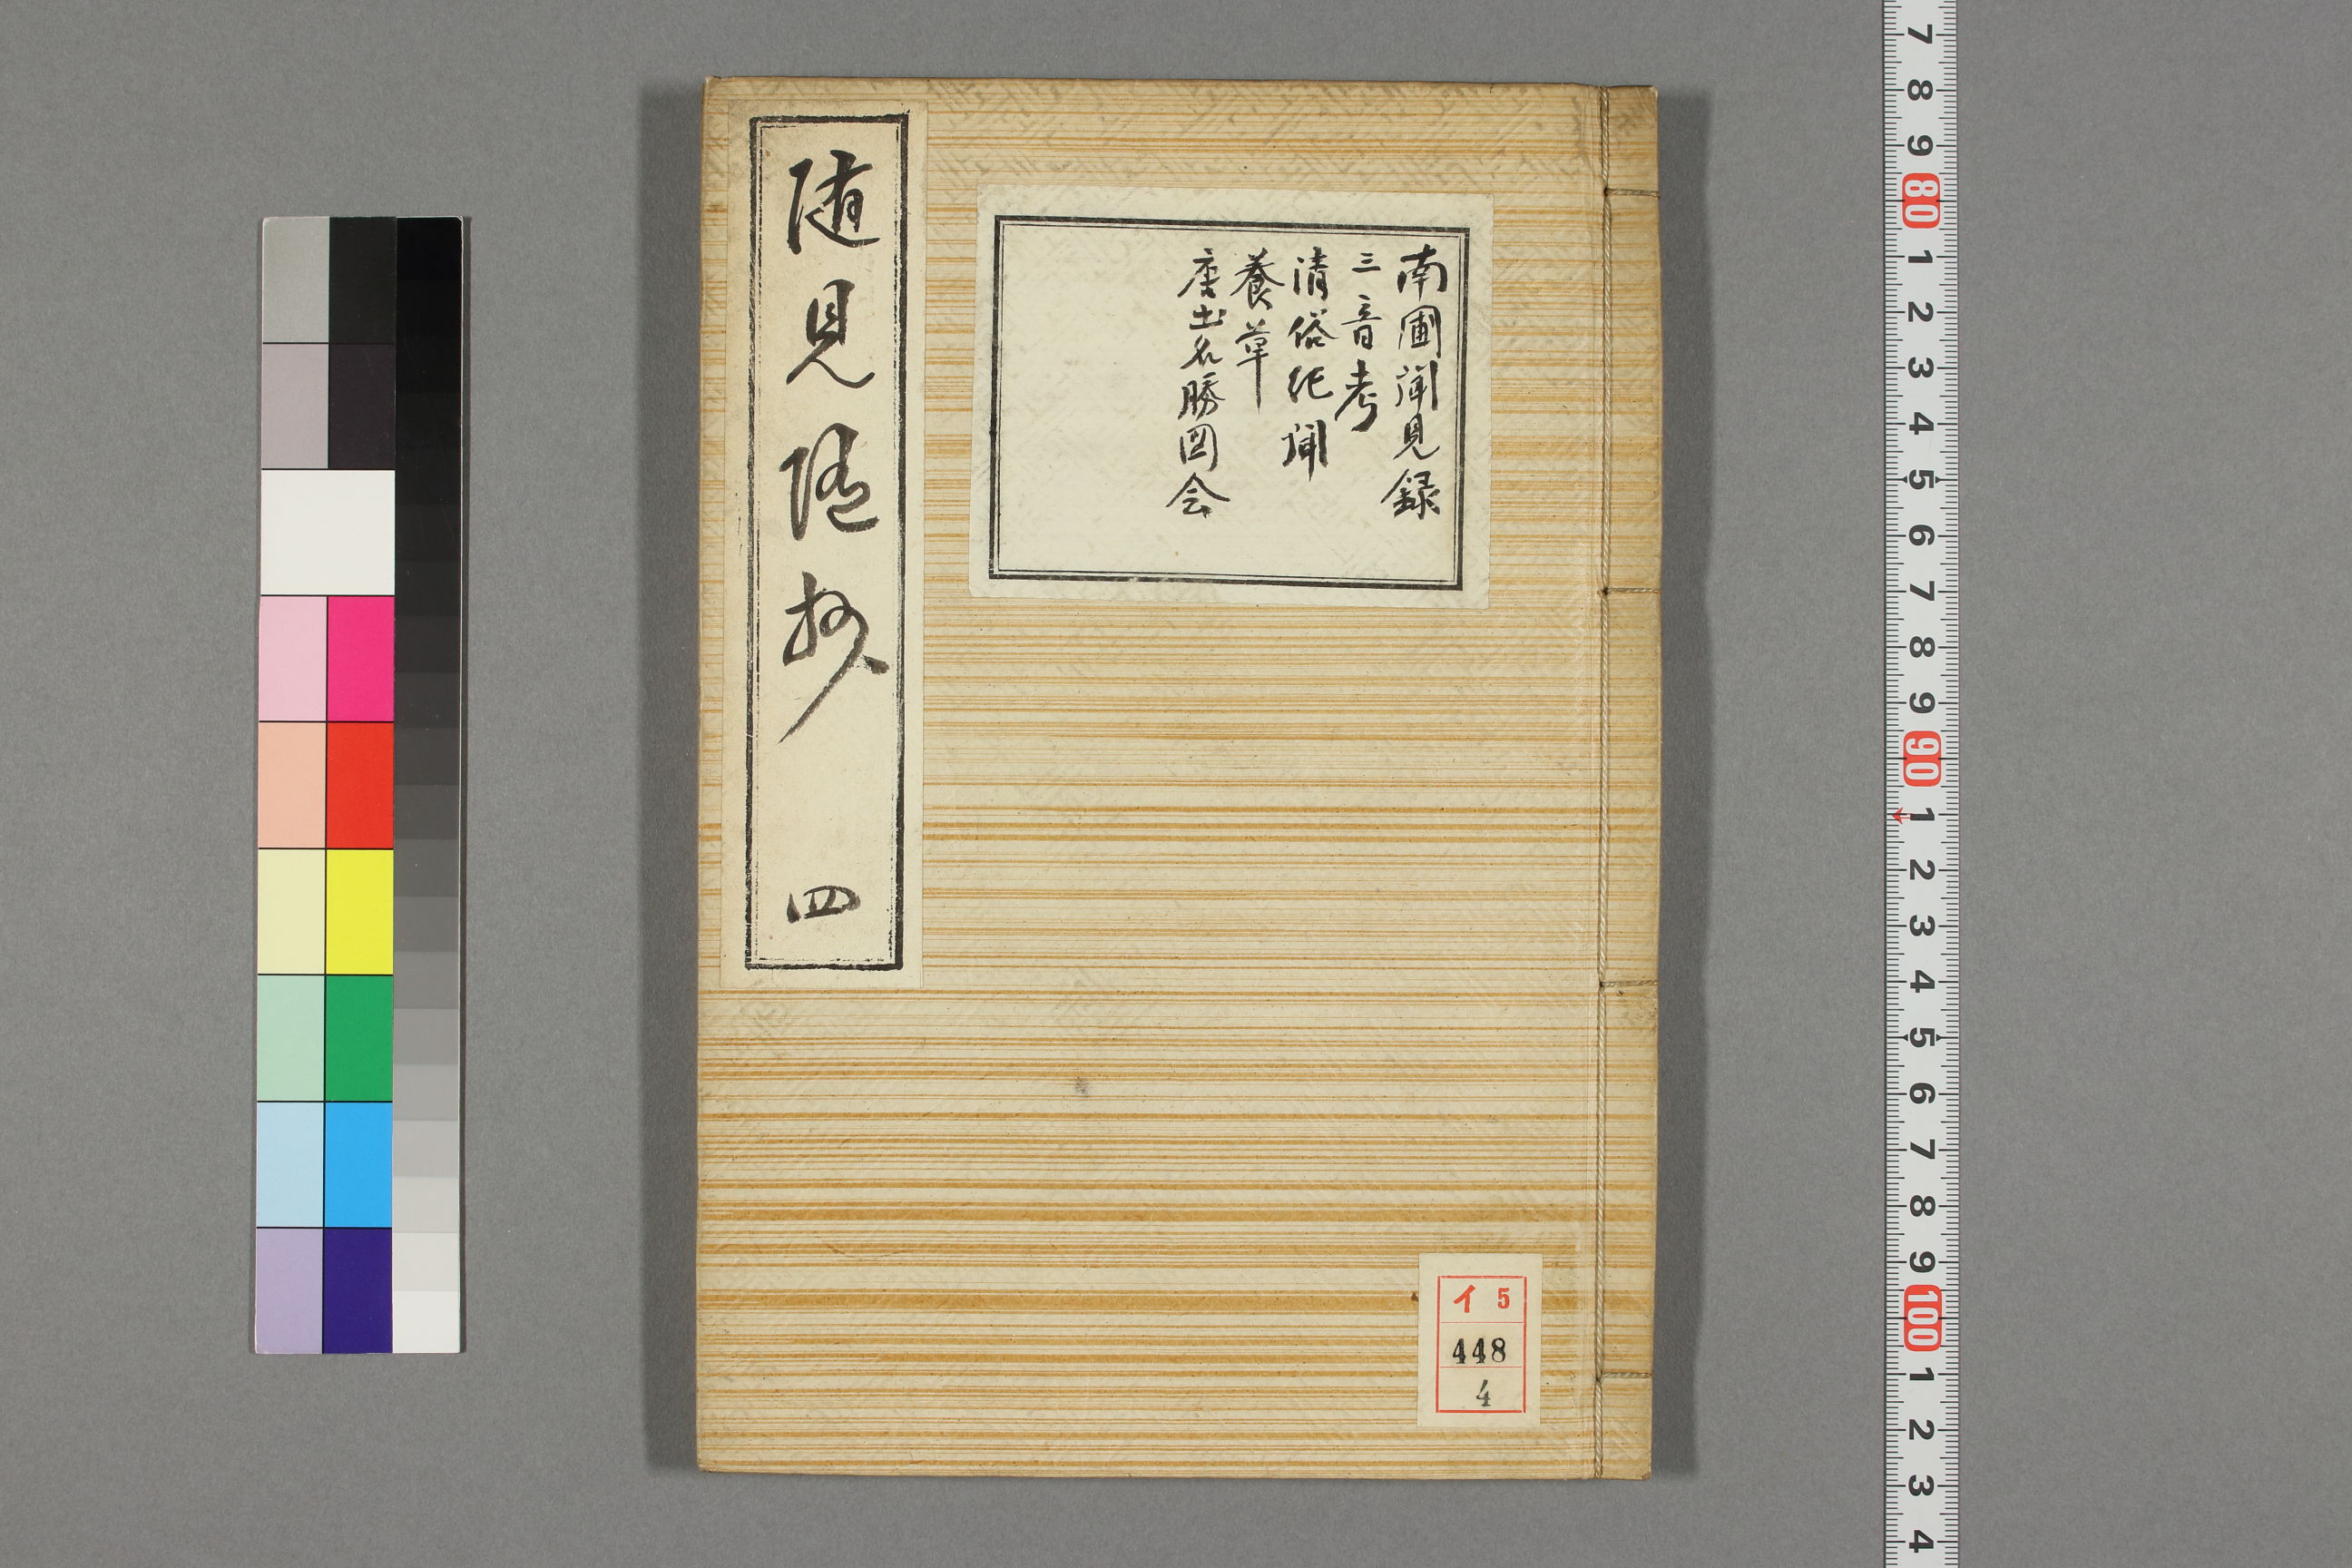 随見随抄 四
南圃聞見録
三音考
清俗紀聞
養草
唐土名勝図会
イ 5
448
4
7
8
9
80
1
2
3
4
5
6
7
8
9
90
1
2
3
4
5
6
7
8
9
100
1
2
3
4